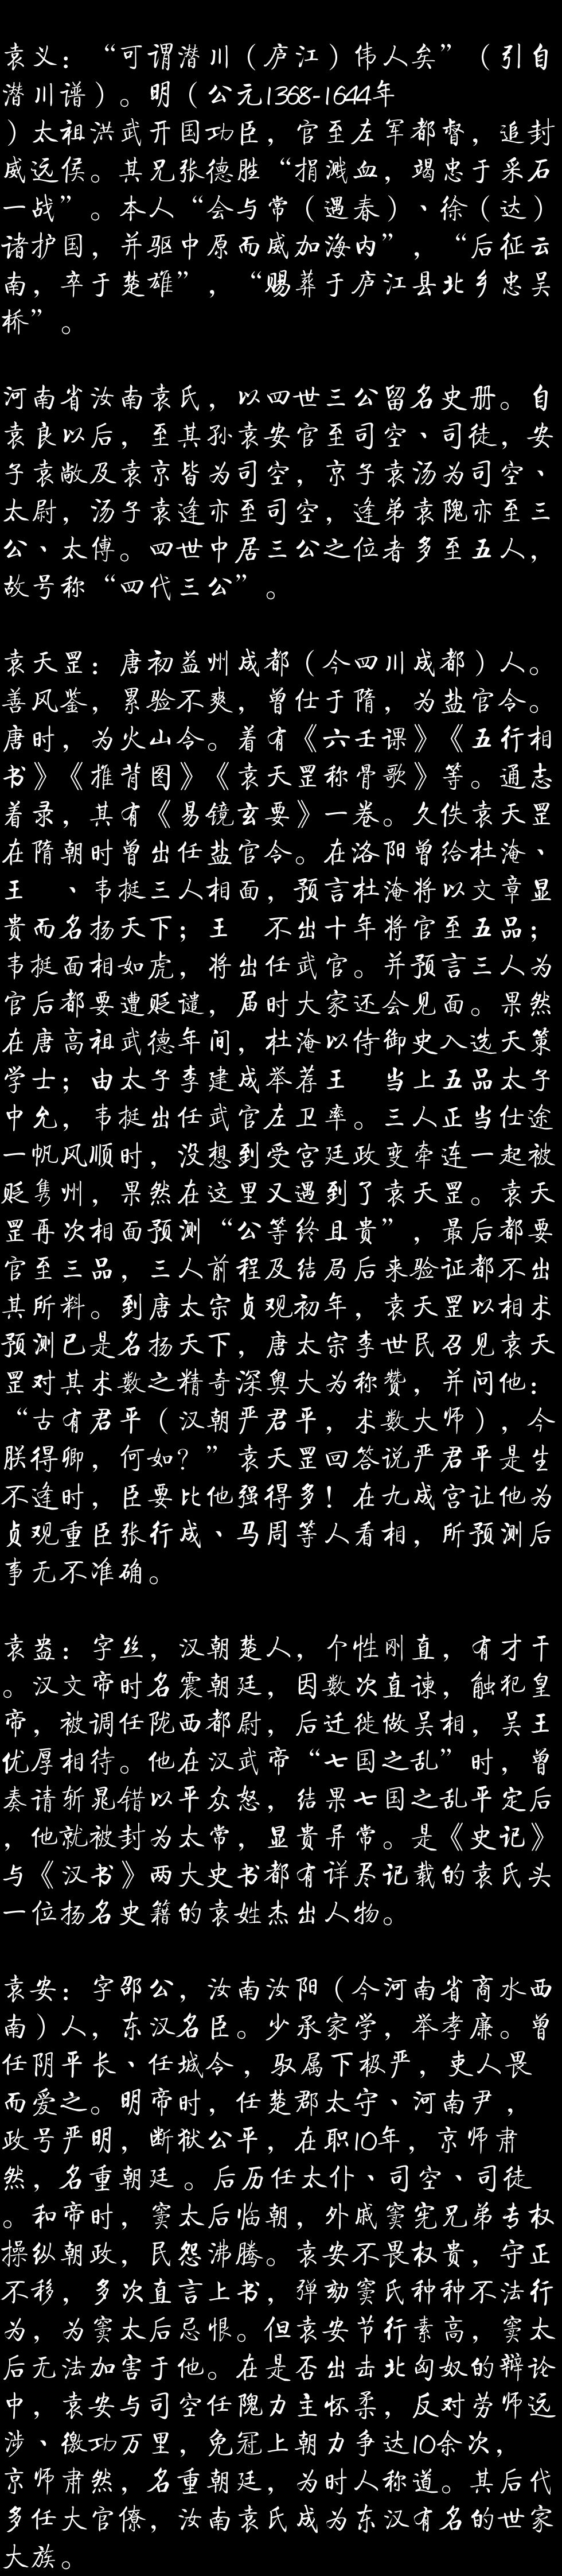 袁义：“可谓潜川（庐江）伟人矣”（引自
潜川谱）。明（公元1368-1644年
）太祖洪武开国功臣，官至左军都督，追封
威远侯。其兄张德胜“捐溅血，竭忠于采石
一战”。本人“会与常（遇春）、徐（达）
诸护国，并驱中原而威加海内”，“后征云
南，卒于楚雄”，“赐葬于庐江县北乡忠吴
桥”。
河南省汝南袁氏，以四世三公留名史册。自
袁良以后，至其孙袁安官至司空、司徒，安
子袁敞及袁京皆为司空，京子袁汤为司空、
太尉，汤子袁逢亦至司空，逢弟袁隗亦至三
公、太傅。四世中居三公之位者多至五人，
故号称“四代三公”。
袁天罡：唐初益州成都（今四川成都）人。
善风鉴，累验不爽，曾仕于隋，为盐官令。
唐时，为火山令。着有《六壬课》《五行相
书》《推背图》《袁天罡称骨歌》等。通志
着录，其有《易镜玄要》一卷。久佚袁天罡
在隋朝时曾出任盐官令。在洛阳曾给杜淹、
王　、韦挺三人相面，预言杜淹将以文章显
贵而名扬天下；王　不出十年将官至五品；
韦挺面相如虎，将出任武官。并预言三人为
官后都要遭贬谴，届时大家还会见面。果然
在唐高祖武德年间，杜淹以侍御史入选天策
学士；由太子李建成举荐王　当上五品太子
中允，韦挺出任武官左卫率。三人正当仕途
一帆风顺时，没想到受宫廷政变牵连一起被
贬隽州，果然在这里又遇到了袁天罡。袁天
罡再次相面预测“公等终且贵”，最后都要
官至三品，三人前程及结局后来验证都不出
其所料。到唐太宗贞观初年，袁天罡以相术
预测已是名扬天下，唐太宗李世民召见袁天
罡对其术数之精奇深奥大为称赞，并问他：
“古有君平（汉朝严君平，术数大师），今
朕得卿，何如？”袁天罡回答说严君平是生
不逢时，臣要比他强得多！在九成宫让他为
贞观重臣张行成、马周等人看相，所预测后
事无不准确。
袁盎：字丝，汉朝楚人，个性刚直，有才干
。汉文帝时名震朝廷，因数次直谏，触犯皇
帝，被调任陇西都尉，后迁徙做吴相，吴王
优厚相待。他在汉武帝“七国之乱”时，曾
奏请斩晁错以平众怒，结果七国之乱平定后
，他就被封为太常，显贵异常。是《史记》
与《汉书》两大史书都有详尽记载的袁氏头
一位扬名史籍的袁姓杰出人物。
袁安：字邵公，汝南汝阳（今河南省商水西
南）人，东汉名臣。少承家学，举孝廉。曾
任阴平长、任城令，驭属下极严，吏人畏
而爱之。明帝时，任楚郡太守、河南尹，
政号严明，断狱公平，在职10年，京师肃
然，名重朝廷 。后历任太仆、司空、司徒
。和帝时，窦太后临朝，外戚窦宪兄弟专权
操纵朝政，民怨沸腾。袁安不畏权贵，守正
不移，多次直言上书，弹劾窦氏种种不法行
为，为窦太后忌恨。但袁安节行素高，窦太
后无法加害于他。在是否出击北匈奴的辩论
中，袁安与司空任隗力主怀柔，反对劳师远
涉、徼功万里，免冠上朝力争达10余次，
京师肃然，名重朝廷，为时人称道。其后代
多任大官僚，汝南袁氏成为东汉有名的世家
大族。